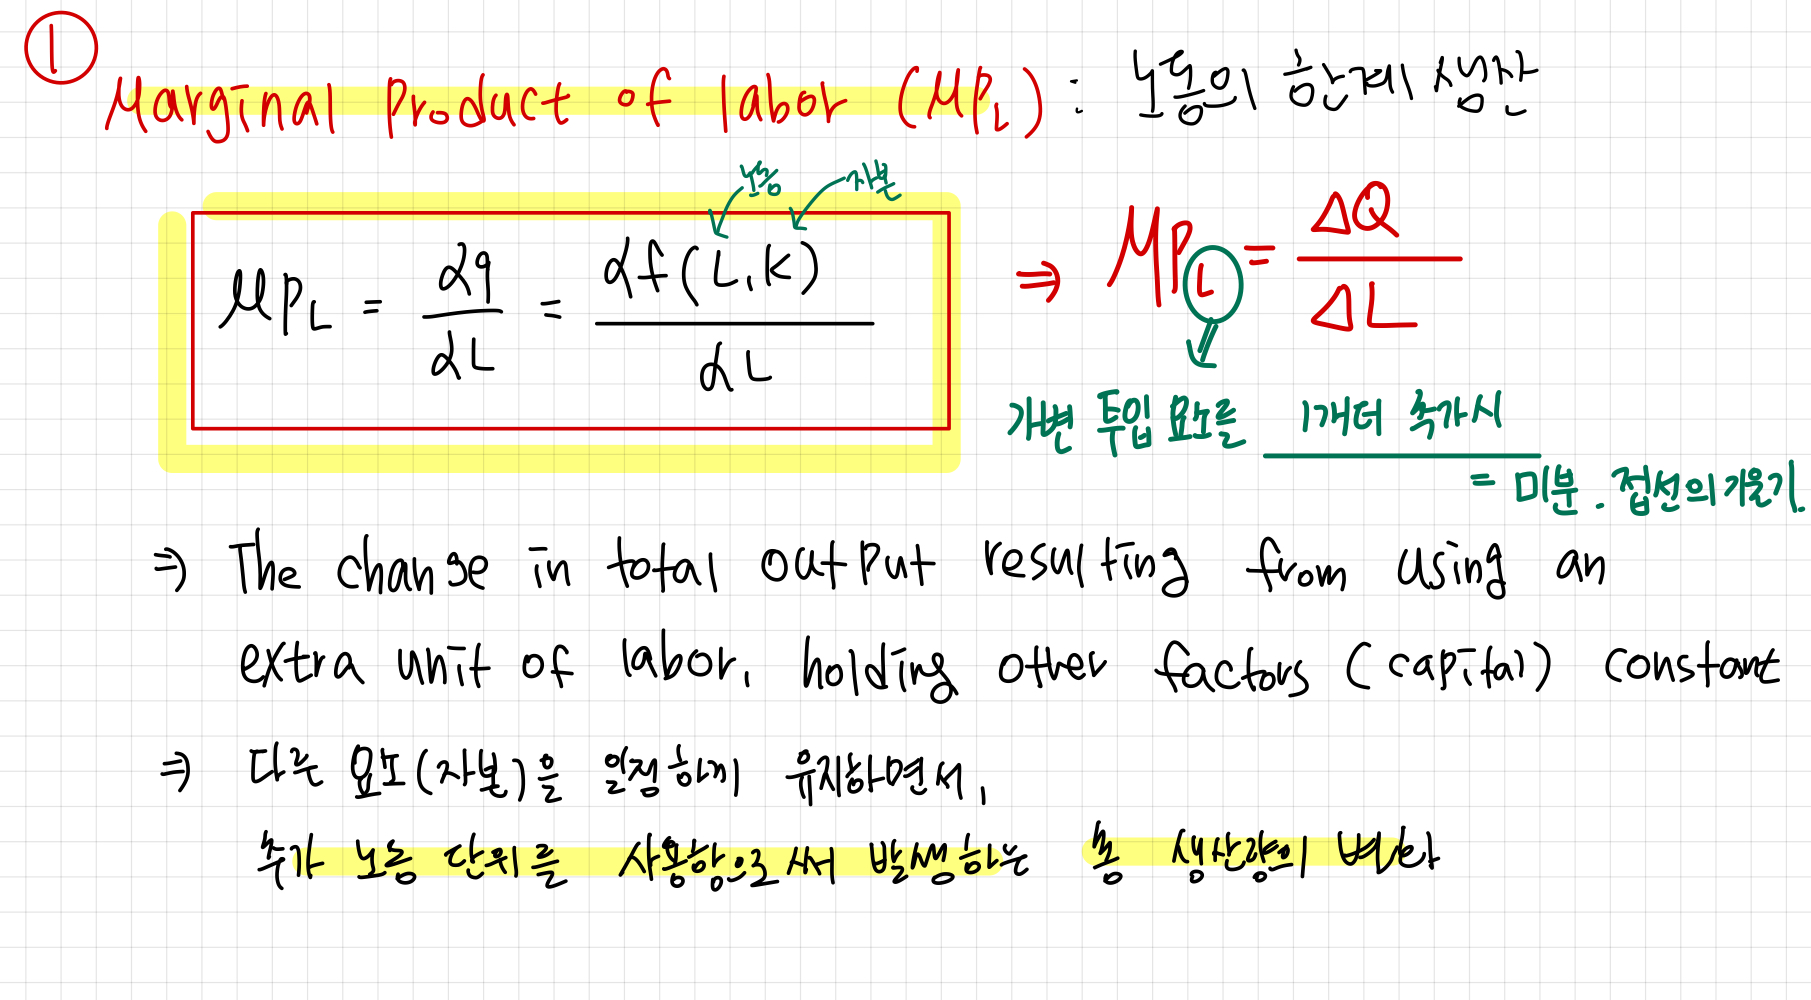 ①
Marginal Product of labor (MP_L) : 노동의 한계 생산
노동 자본
MP_L = αq/αL = αf(L,K)/αL ⇒ MP_L = ΔQ/ΔL
가변 투입 요소를 1개더 추가시
= 미분. 접선의 기울기.
⇒ The change in total output resulting from using an
extra unit of labor, holding other factors (capital) constant
⇒ 다른 요소(자본)을 일정하게 유지하면서,
추가 노동 단위를 사용함으로써 발생하는 총 생산량의 변화